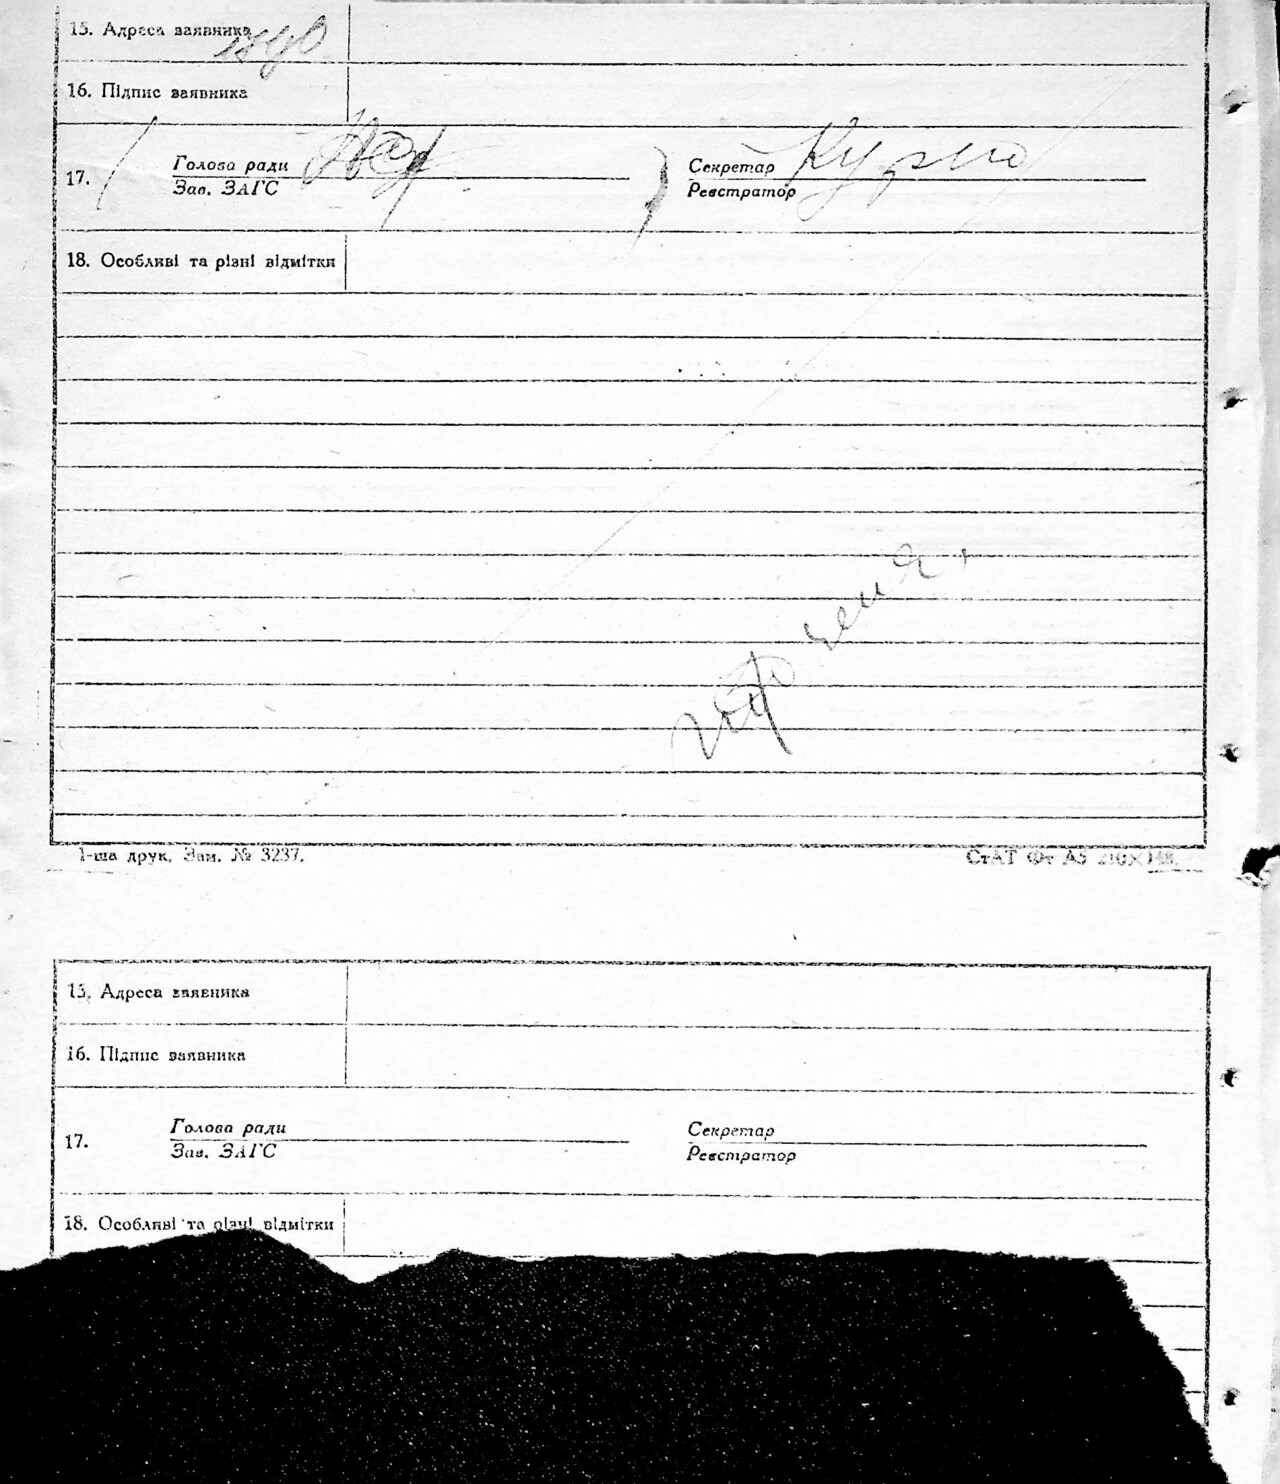 15. Адреса заявника
16. Підпис заявника
17. Голова ради Секретар
Зав. ЗАГС Реєстратор
18. Особливі та різні відмітки
1-ша друк. Зам. № 3237. СтАТ Фт А5 210×148.
15. Адреса заявника
16. Підпис заявника
17. Голова ради Секретар
Зав. ЗАГС Реєстратор
18. Особливі та різні відмітки